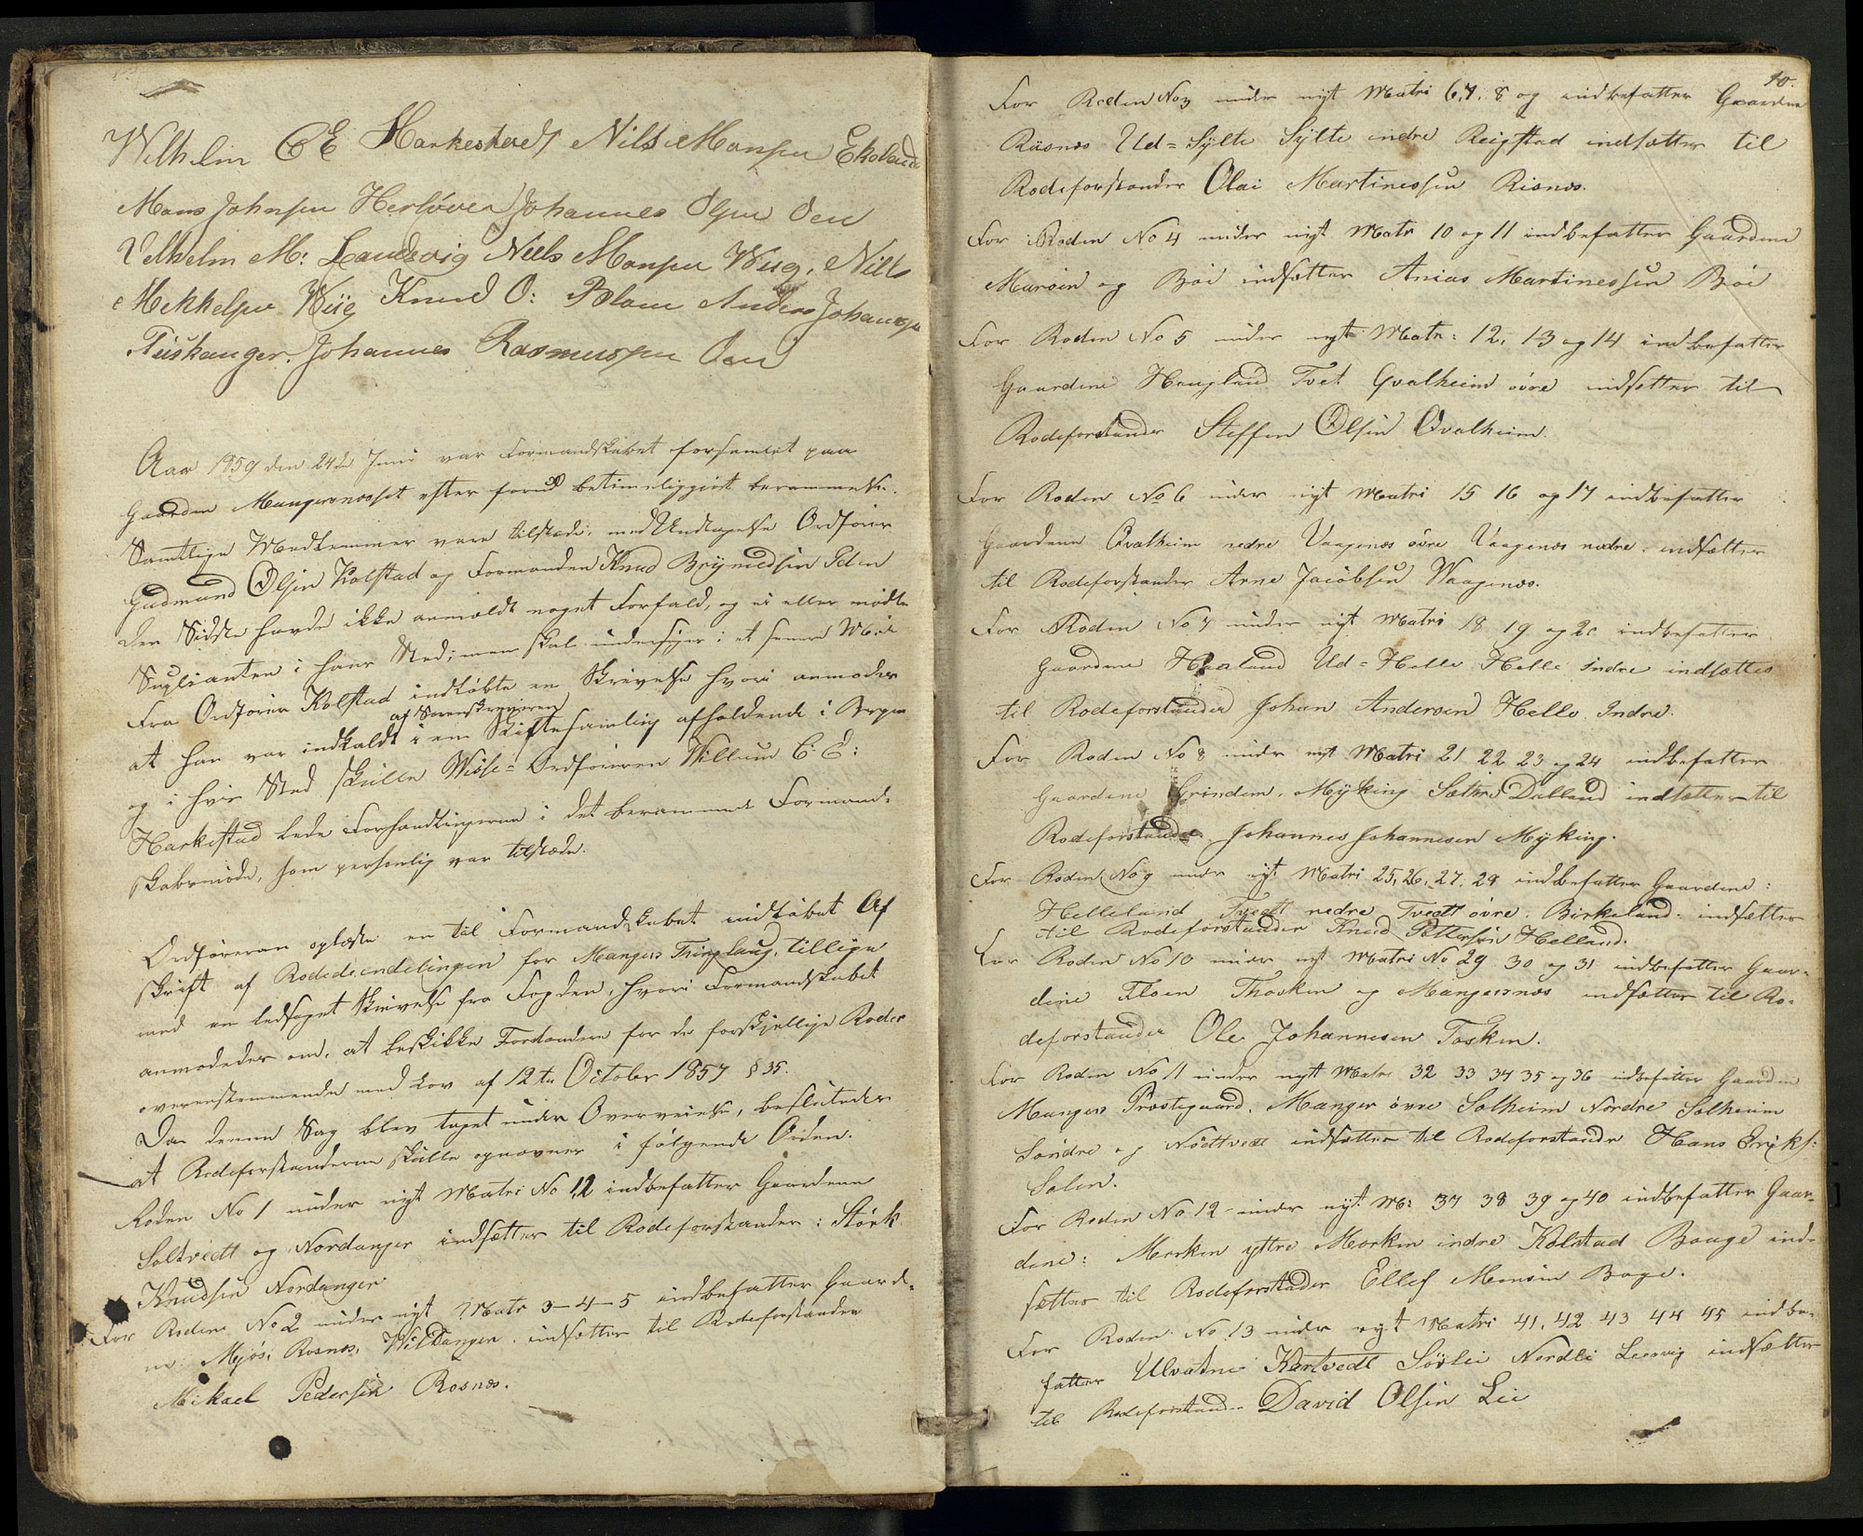 Wilhelm C E Harkestad Nils Monsen Ekeland
Mons Johnsen Herløver Johannes Olsen Oen
Velhelm M: Landsvig Niels Monsen Wiig, Nills
Mekkelsen Wiig Knud O: Blom Anders Johannsen
Tuskanger. Johannes Rasmussen Oen
Aar 1859 den 24de Juni var Formandskabet forsamlet paa
Gaarden Mangersnæsset efter forud betimeliggjort berammelse.
Samtlige Medlemmer vare tilstæde, med Undtagelse Ordfører
Gudmund Olsen Kolstad og Formanden Knud Brynildsen Iden
Den Sidste havde ikke anmældt noget Forfald, og ei eller mødte
Suplianten i hans Sted; men skal undersøges i et senere Møde
Fra Ordfører Kolstad indløbte en Skrivelse hvori anmodes
af Sorenskriveren
at han var indkaldt i en Skiftesamling afholdende i Bergen
og i hvis Sted skulle Wise= Ordføreren Willum C: E:
Harkestad lede Forhandlingerne i det berammede Formand-
skabsmøde, som personlig var tilstæde.
Ordføreren oplæste en til Formandskabet indløbet Af
skrift af Rodedeindelingen for Mangers Thinglaug, tillige
med en ledsaget Skrivelse fra Fogden, hvori Formandskabet
anmodedes om, at beskikke Forstandere for de forskjellige Roder
overensstemmende med Lov af 12te October 1857 § 35.
Da denne Sag blev taget under Overveielse, besluttedes
at Rodeforstanderne skulle opnævnes i følgende Orden.
Roden No 1 under nyt Matri No 1,2 indbefatter Gaardene
Soltvedt og Nordanger indsættes til Rodeforstander: Størk
Knudsen Nordanger
For Roden No 2 under nyt Matr 3-4-5 indbefatter Gaarde-
ne: Mjøs, Rosnes, Wildanger. indsættes til Rodeforstander
Mikael Pedersen Rosnes.
10.
For Roden No 3 under nyt Matri 6, 7. 8 og indbefatter Gaardene
Risnes Ud=Sylte Sylte indre Reigstad indsættes til
Rodeforstander Olai Martinessen Risnes.
For Roden No 4 under nyt Matr 10 og 11 indbefatter Gaardene
Marøen og Bøe indsættes Anias Martinessen Bøe
For Roden No 5 under nyt Matr: 12, 13 og 14 indbefatter
Gaardene Haugland Tvet Qvalheim øvre indsættes til
Rodeforstander Steffen Olsen Qvalheim.
For Roden No 6 under nyt Matri 15 16 og 17 indbefatter
Gaardene Qvalheim nedre Vaagenes øvre Vaagenes nedre. indsættes
til Rodeforstander Arne Jacobsen Waagenes.
For Roden No 7 under nyt Matri 18 19 og 20 indbefatter
Gaardene Haaland Ud=Helle Helle indre indsættes
til Rodeforstander Johan Andersen Helle Indre.
For Roden No 8 under nyt Matri 21 22 23 og 24 indbefatter
Gaardene Grindem, Myking Sætre Dalland indsættes til
Rodeforstander Johannes Johannesen Myking.
For Roden No 9 under nyt Matri 25, 26, 27, 28 indbefatter Gaardene:
Helleland Tvedt nedre Tvedt øvre. Birkeland. indsættes
til Rodeforstander Knud Pettersen Helland.
For Roden No 10 under nyt Matri No 29 30 og 31 indbefatter Gaar-
dene Floen Thosken og Mangersnes indsættes til Ro-
deforstander Ole Johannesen Tosken.
For Roden No 11 under nytt Matri 32 33 34 35 og 36 indbefatter Gaarden
Mangers Præstegaard. Manger øvre Solheim Nordre Solheim
Søndre og Nødtvedt indsættes til Rodeforstander Hans Eriks:
Solem.
For Roden No 12 under nyt M: 37 38 39 og 40 indbefatter Gaar-
dene: Morken yttre Morken indre Kolstad Bauge ind-
sættes til Rodeforstander Ellef Monsen Boge.
For Roden No 13 under nyt Matri 41, 42 43 44 45 indbe-
fatter Ulvatne Kartvedt Sørlei Nordlei Leervig indsættes
til Rodeforstander David Olsen Lie